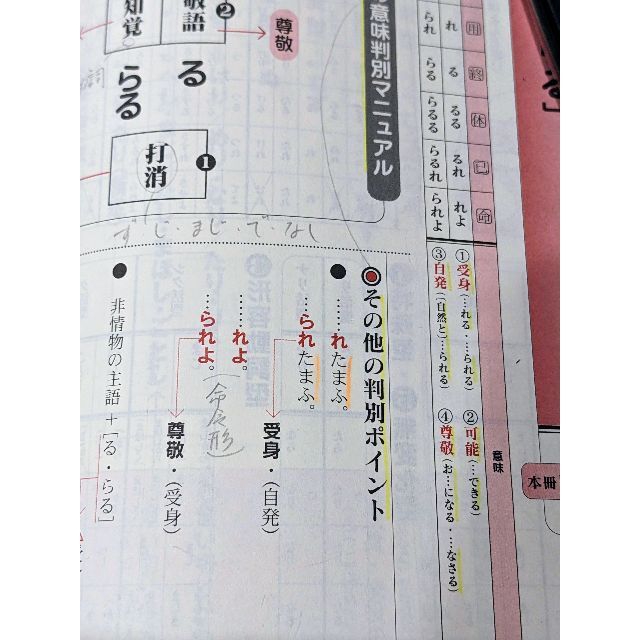 意味
①受身(…れる・…られる)
②可能(…できる)
③自発((自然と)…られる)
④尊敬(お…になる・…なさる)
用 終 体 已 命
れ る るる るれ れよ
られ らる らるる らるれ られよ
本冊
意味判別マニュアル
尊敬
敬語
❷
知覚
る
らる
打消
❶
ず・じ・まじ・で・なし
その他の判別ポイント
● ……れたまふ。
……られたまふ。
受身・(自発)
……れよ。
……られよ。
(命令形)
尊敬・(受身)
● 非情物の主語+[る・らる]